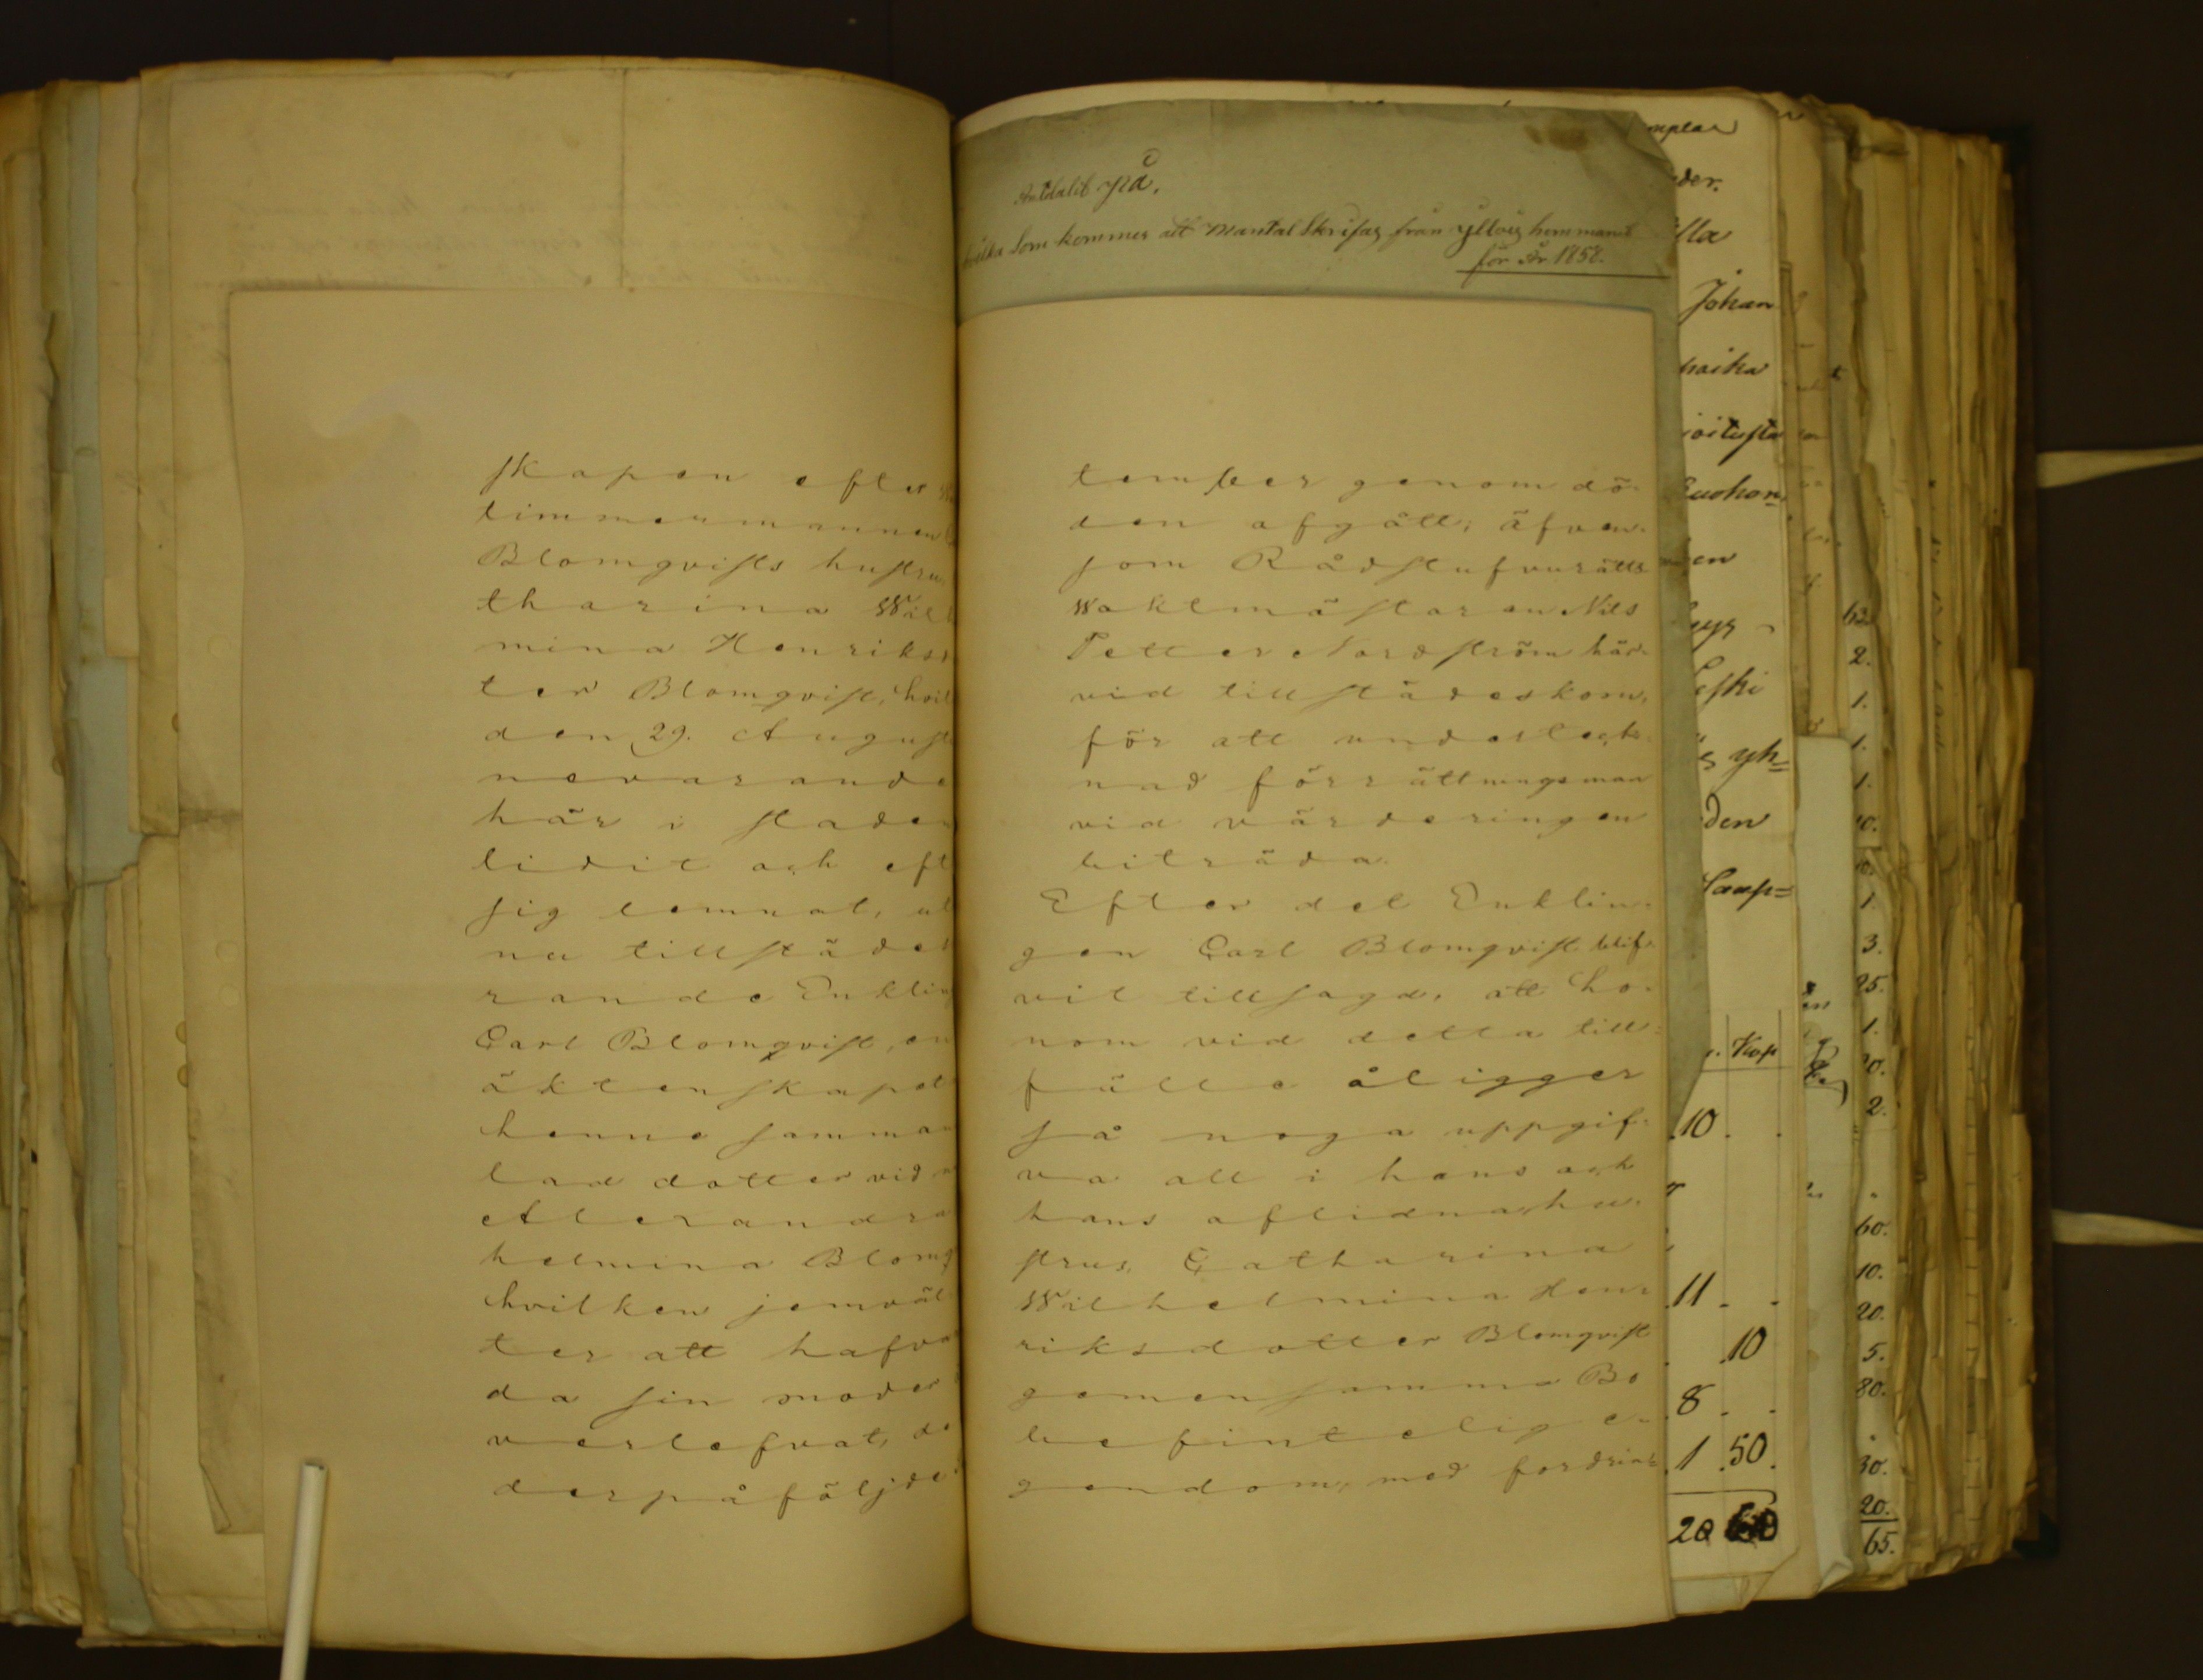 skapen efter
timmermannen
Blomqvists hustru
tharina Wil
mina Henriks
ter Blomqvist, hvil
den 29. August
nevarande
här i staden
lidit och eft
sig lemnat, ut
nu tillstädes
rande Enklin
Carl Blomqvist, en
äktenskapet
henne samman
lad dotter vid
Alexandra
helmina Blomq
hvilken jemväl
ter att hafva
da sin moder
verlefvat, de
derpåföljde
som kommer att Mantal Skrifas från hemmanet
för År 1858.
tember genom dö-
den afgått; äfven-
som Rådstufvurätts
Waktmästaren Nils
Petter Nordström här-
vid tillstädeskom,
för att underteck-
nad förrättningsman
vid värderingen
biträda.
Efter det Enklin-
gen Carl Blomqvist blif-
vit tillsagd, att ho-
nom vid detta till-
fälle åligger
så noga uppgif-
va all i hans och
hans aflidna hu-
strus, Catharina
Wilhelmina Hen-
riksdotter Blomqvist
gemensamma Bo
befintelig e-
gendom, med fordrin-
mplar
der.
lla
Johan
haika
oitusta
uohon
en
eski
yh=
den
Kop
10
11
10
8
1 50
20
62.
2.
1.
1.
1.
10.
1.
3.
25.
1.
2.
60.
10.
20.
5.
80.
30.
20.
65.